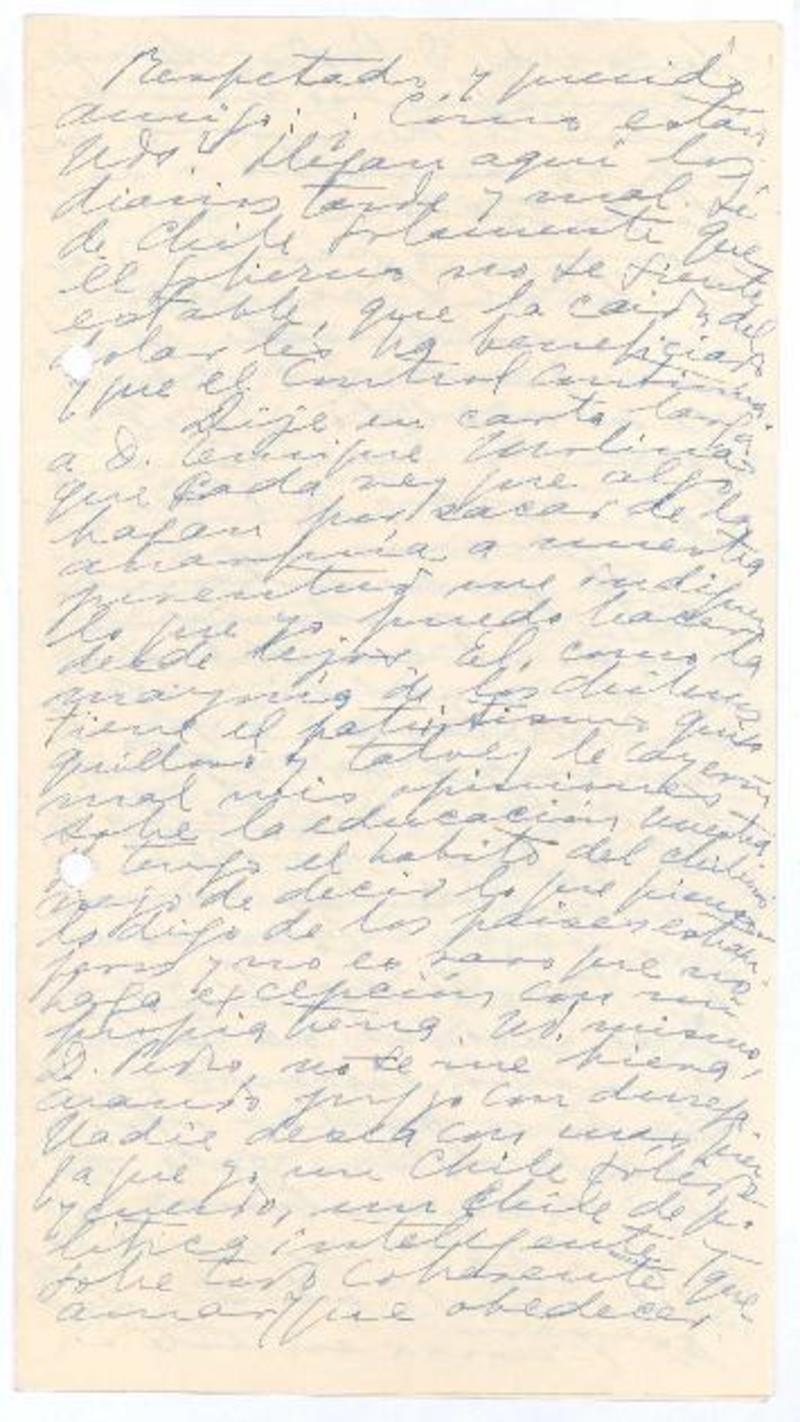 Respetado y querido
amigo: ¿Cómo están
Uds? Llegan aquí los
diarios tarde y mal. Sé
de Chile solamente que
el gobierno no se siente
estable, que la caída del
dolar les ha beneficiado
y que el Control continúa.
Dije en carta larga
a D. Enrique Molina
que cada vez que algo
hagan por sacar de la
anarquía a nuestra
juventud me indiquen
lo que yo puedo hacer
desde lejos. El, como la
mayoría de los chilenos
tiene el patriotismo quis
quilloso y talvez le cayeron
mal mis opiniones
sobre la educación nuestra
Yo tengo el habito del chileno
viejo de decir lo que pienso.
lo digo de los países extran
jeros y no es raro que no
haga excepción con mi
propia tierra. Ud. mismo,
D. Pedro, no se me
cuando juzgo con dureza
Nadie desea con más
que yo un Chile sólido
y cuerdo, un Chile de po-
litica inteligente y
sobre todo coherente que
amar y que obedecer